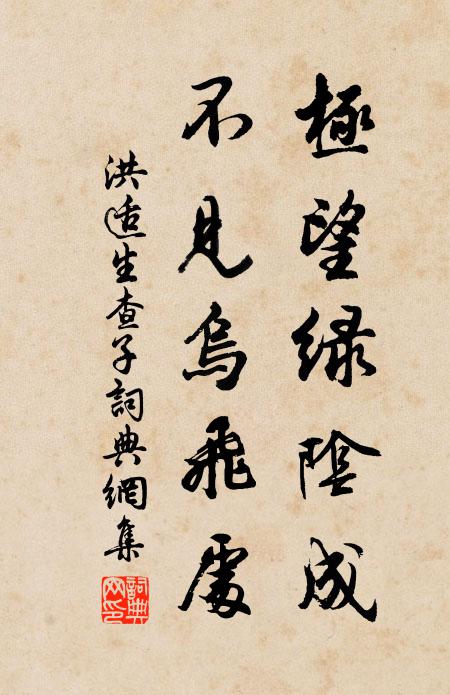 極望綠陰成
不見烏飛處
洪适生查子詞典網集
詞典
網印